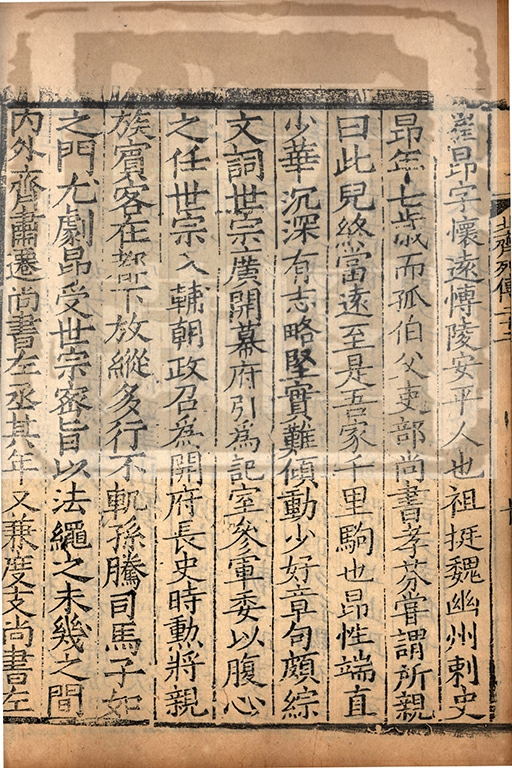 北齊列傳二十二
崔昂字懷遠博陵安平人也祖挺魏幽州刺史
昂年七歲而孤伯父吏部尚書孝芬嘗謂所親
曰此兒終當遠至是吾家千里駒也昂性端直
少華沉深有志略堅實難傾動少好章句頗綜
文詞世宗廣開幕府引爲記室參軍委以腹心
之任世宗入輔朝政召爲開府長史時勲將親
族賓客在都下放縱多行不軌孫騰司馬子如
之門尤劇昂受世宗宻旨以法繩之未幾之間
内外齊肅遷尚書左丞其年又兼度支尚書左